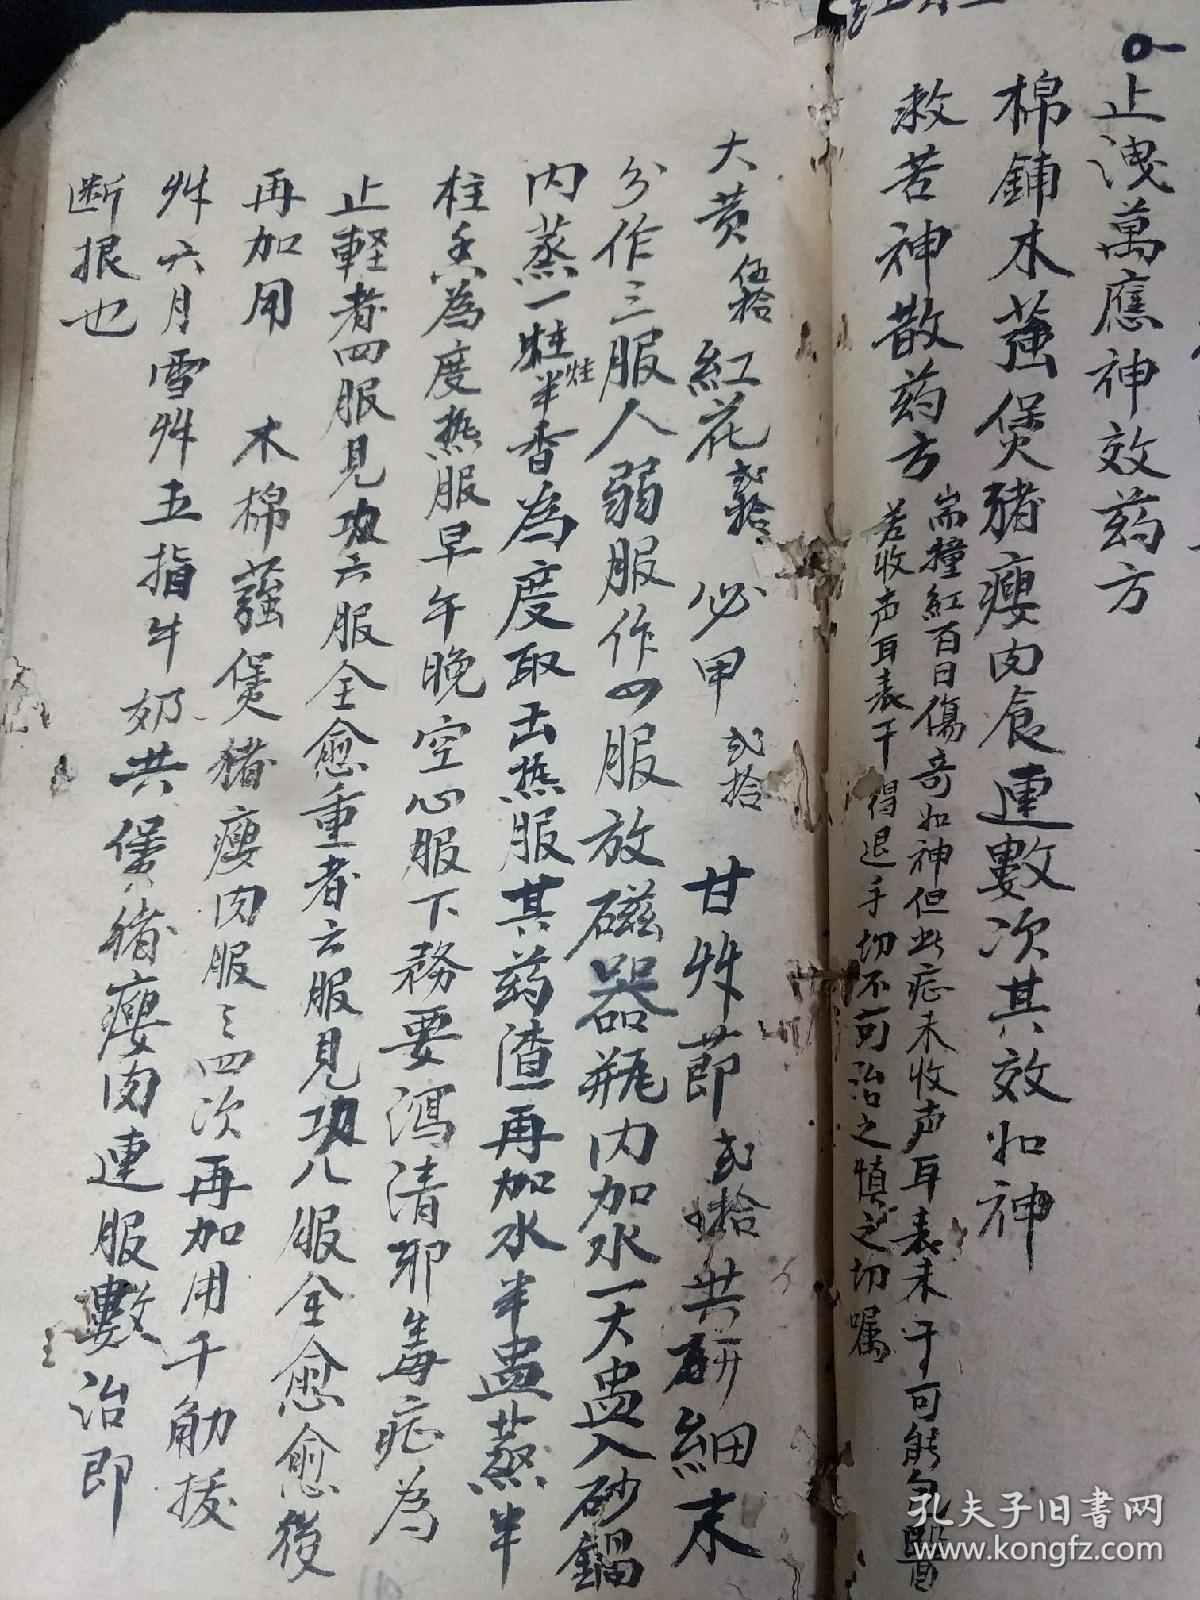 止洩萬應神效药方
棉鋪木蔃煲豬瘦肉食連數次其效如神
救苦神散药方
耑撞紅百日傷奇如神但此症未收声耳表未干可能包醫
若收声耳表干得退手切不可治之慎之切嘱
大黄 伍拾 紅花 弍拾 必甲 弍拾 甘艸莭 弍拾 共研細末
分作三服人弱服作四服放磁器瓶内加水一大盅入砂鍋
内蒸一炷半香為度取出热服其药渣再加水半盅蒸半
炷
柱香為度热服早午晚空心服下務要瀉清邪毒症為
止軽者四服見功六服全愈重者六服見功八服全愈愈後
再加用 木棉蔃煲豬瘦肉服三四次再加用千觔拔
艸六月雪艸五指牛奶共煲豬瘦肉連服數治即
断根也
孔夫子旧书网
www.kongfz.com